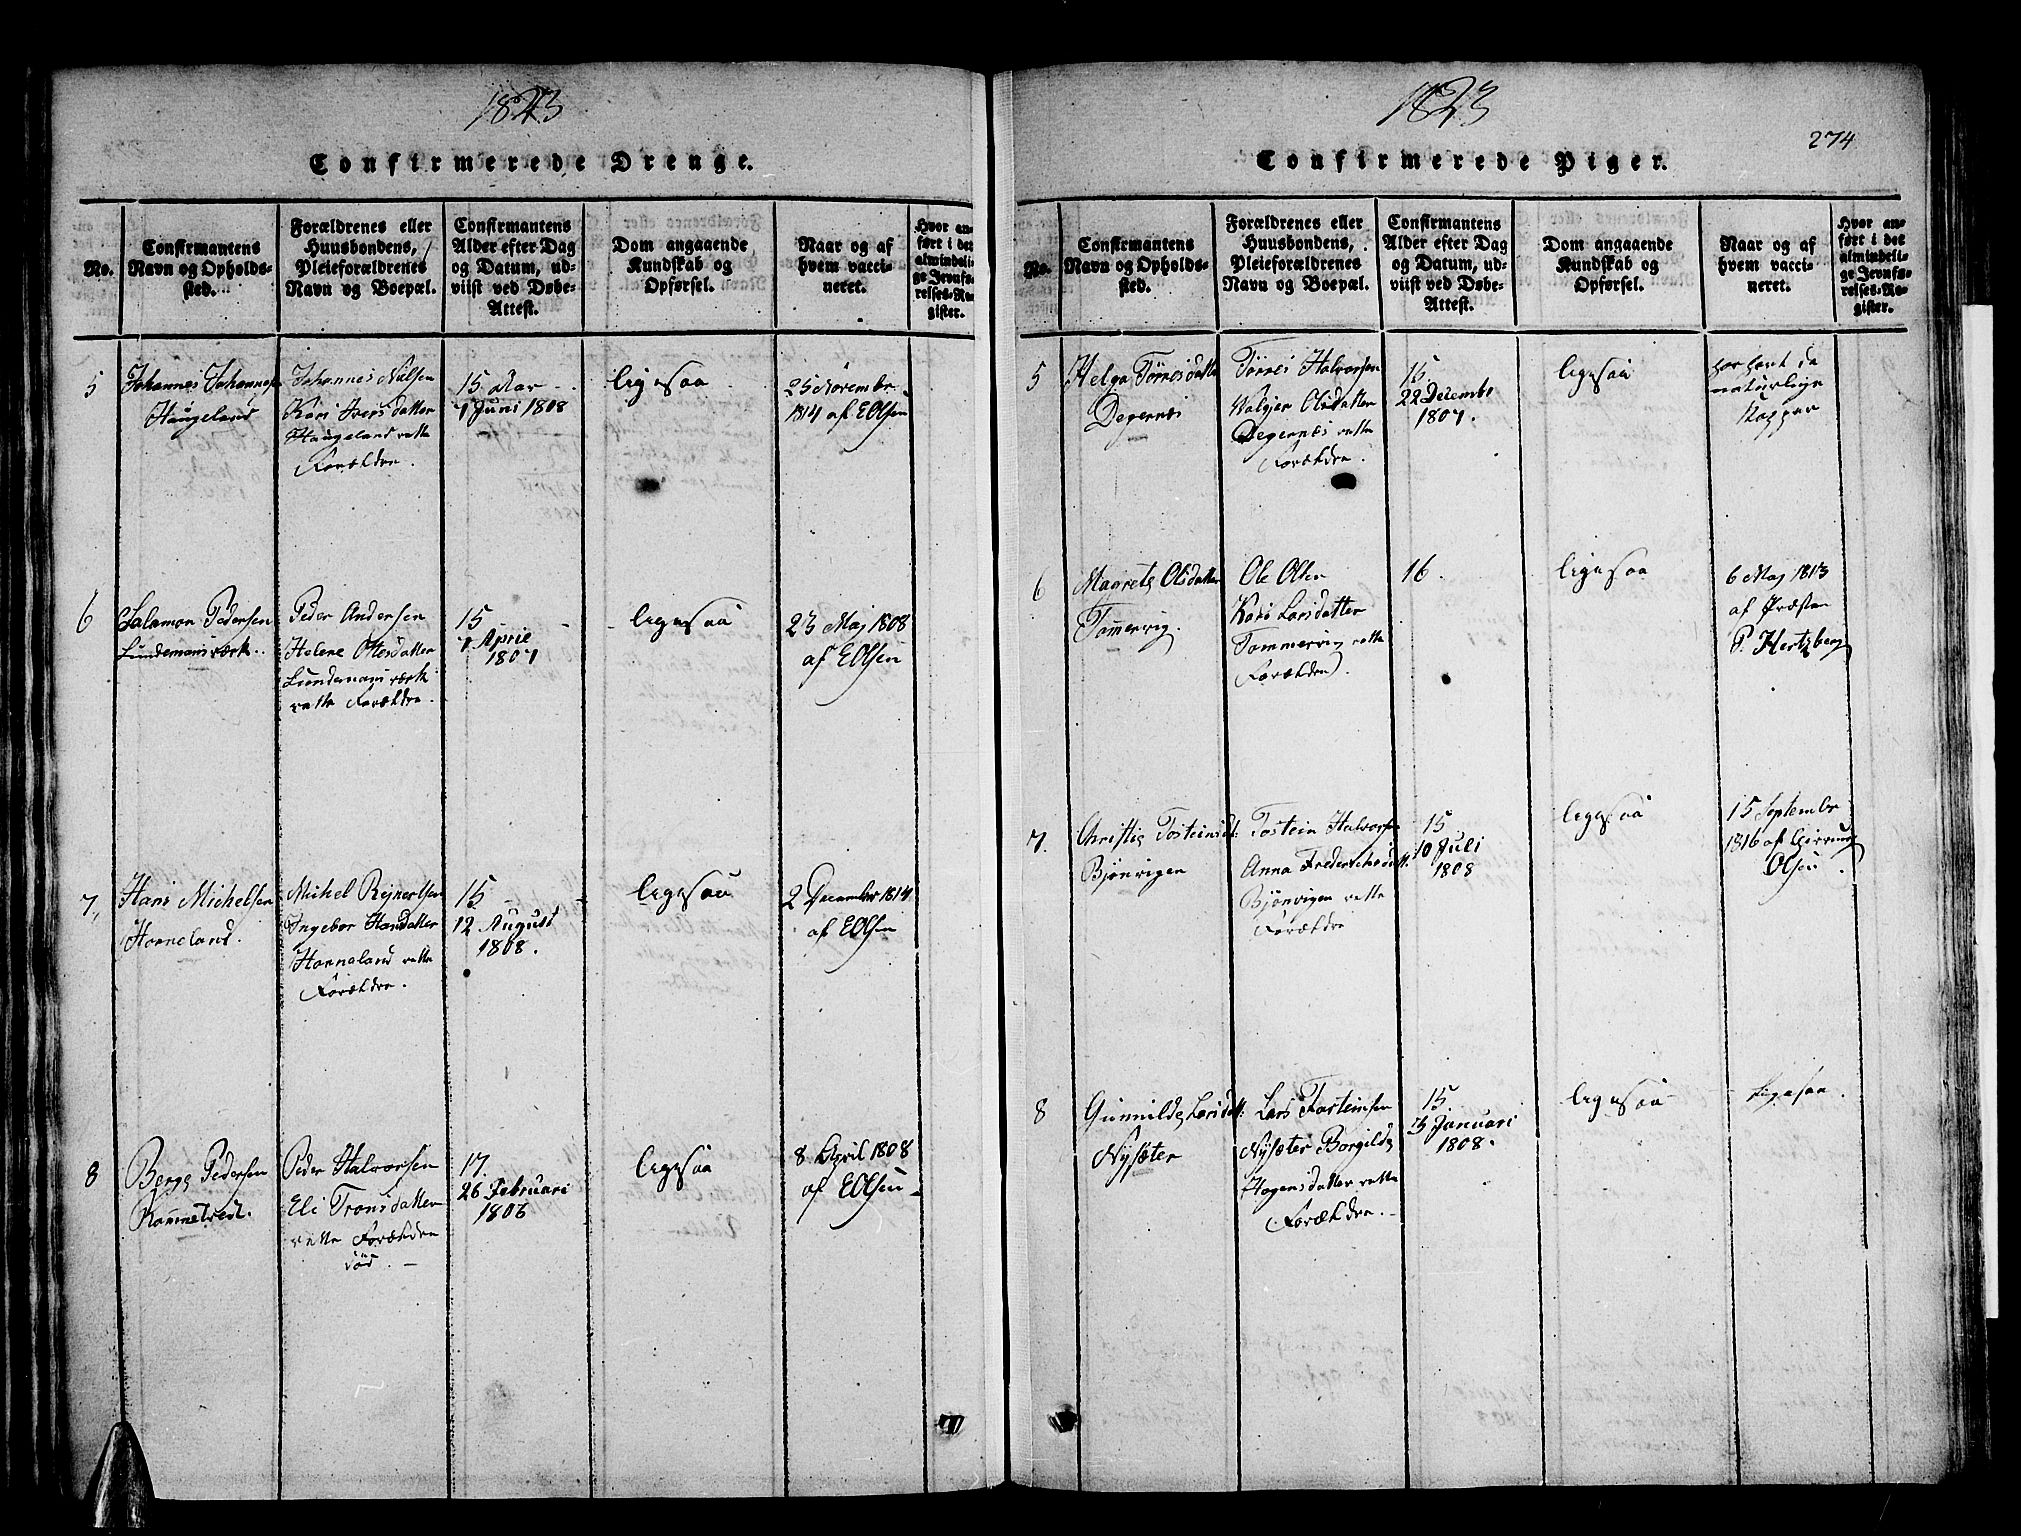 1823
Confirmerede Drenge.
No.
Confirmantens
Navn og Opholds-
sted.
Forældrenes eller
Huusbondens,
Pleieforældrenes
Navn og Boepæl.
Confirmantens
Alder efter Dag
og Datum, ud-
viist ved Døbe-
Attest.
Dom angaaende
Kundskab og
Opførsel.
Naar og af
hvem vacci-
neret.
Hvor an-
ført i det
almindeli-
ge Jevnfø-
relses-Re-
gister.
5
Johannes Johannes
Haugeland
Johannes Nilsen
Kari Iversdatter
Haugeland rette
Forældre.
15 Aar
1 Juni 1808
ligesaa
25 Novembr
1814 af EOlsen
6
Salamon Pedersen
Lundemansværk.
Peder Andersen
Helene Olesdatter
Lundemansværk
rette Forældre.
15
7 April
1807
ligesaa
23 Maj 1808
af EOlsen
7,
Hans Michelsen
Horneland.
Michel Rejnertsen
Ingebor Hansdatter
Horneland rette
Forældre.
15
12 August
1808.
ligesaa
2 December 1814
af EOlsen
8
Berge Pedersen
Rommetvedt.
Peder Halvorsen
Eli Tronsdatter
rette Forældre
död.
17.
26 Februari
1806
ligesaa
8 April 1808
af EOlsen
1823
274
Confirmerede Piger.
No.
Confirmantens
Navn og Opholds-
sted.
Forældrenes eller
Huusbondens,
Pleieforældrenes
Navn og Boepæl.
Confirmantens
Alder efter Dag
og Datum, ud-
viist ved Døbe-
Attest.
Dom angaaende
Kundskab og
Opførsel.
Naar og af
hvem vacci-
neret.
Hvor an-
ført i det
almindeli-
ge Jevnfø-
relses-Re-
gister.
5
Helga Törresdatter
Degernæs
Törres Halvorsen
Valgjer Olsdatter
Degernæs rette
Forældre.
15.
22 Decembr
1807.
ligesaa
har havt de
naturlige
Kopper
6
Magrete Olsdatter
Tømmervig.
Ole Olsen
Kari Larsdatter
Tømmervig rette
Forældre.
16.
ligesaa
6 Maj 1813
af Præsten
P. Hertzberg
7.
Christie Tosteinsd:
Bjönvigen
Tostein Halvorsen
Anna Frederichsdatt:
Bjönvigen rette
Forældre
15
10 Juli
1808
ligesaa
15 Septembr
1816 af
Olsen
8
Gunnilde Larsdatt:
Nysæter
Lars Torsteinsen
Nysæter Borgilde
Hogensdatter rette
Forældre.
15
3 Januari
1808.
ligesaa
ligesaa.